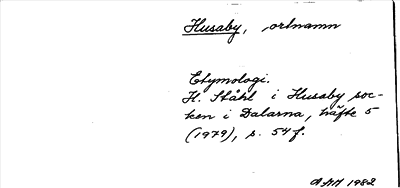 Husaby, ortnamn
Etymologi.
H. Ståhl i Husaby soc-
ken i Dalarna, häfte 5
(1979), s. 54 f.
1982